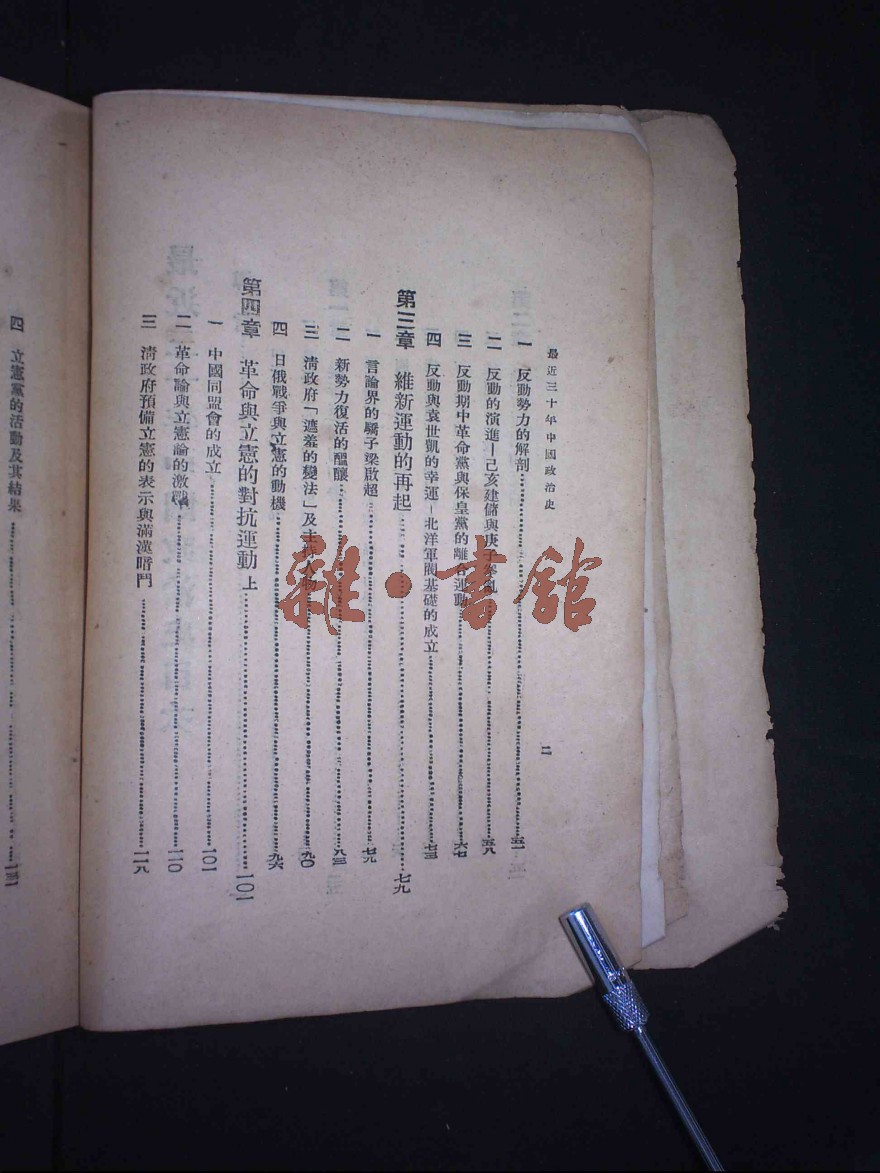 最近三十年中國政治史
二
一 反動勢力的解剖 五一
二 反動的演進—己亥建儲與庚子拳亂 五八
三 反動期中革命黨與保皇黨的離合運動 六七
四 反動與袁世凱的幸運—北洋軍閥基礎的成立 七三
第三章 維新運動的再起 七九
一 言論界的驕子梁啟超 七九
二 新勢力復活的醞釀 八三
三 清政府「遮羞的變法」及主持人物 九〇
四 日俄戰爭與立憲的動機 九六
第四章 革命與立憲的對抗運動 上 一〇一
一 中國同盟會的成立 一〇一
二 革命論與立憲論的激戰 一一〇
三 清政府預備立憲的表示與滿漢暗鬥 一一八
四 立憲黨的活動及其結果
雜·書館